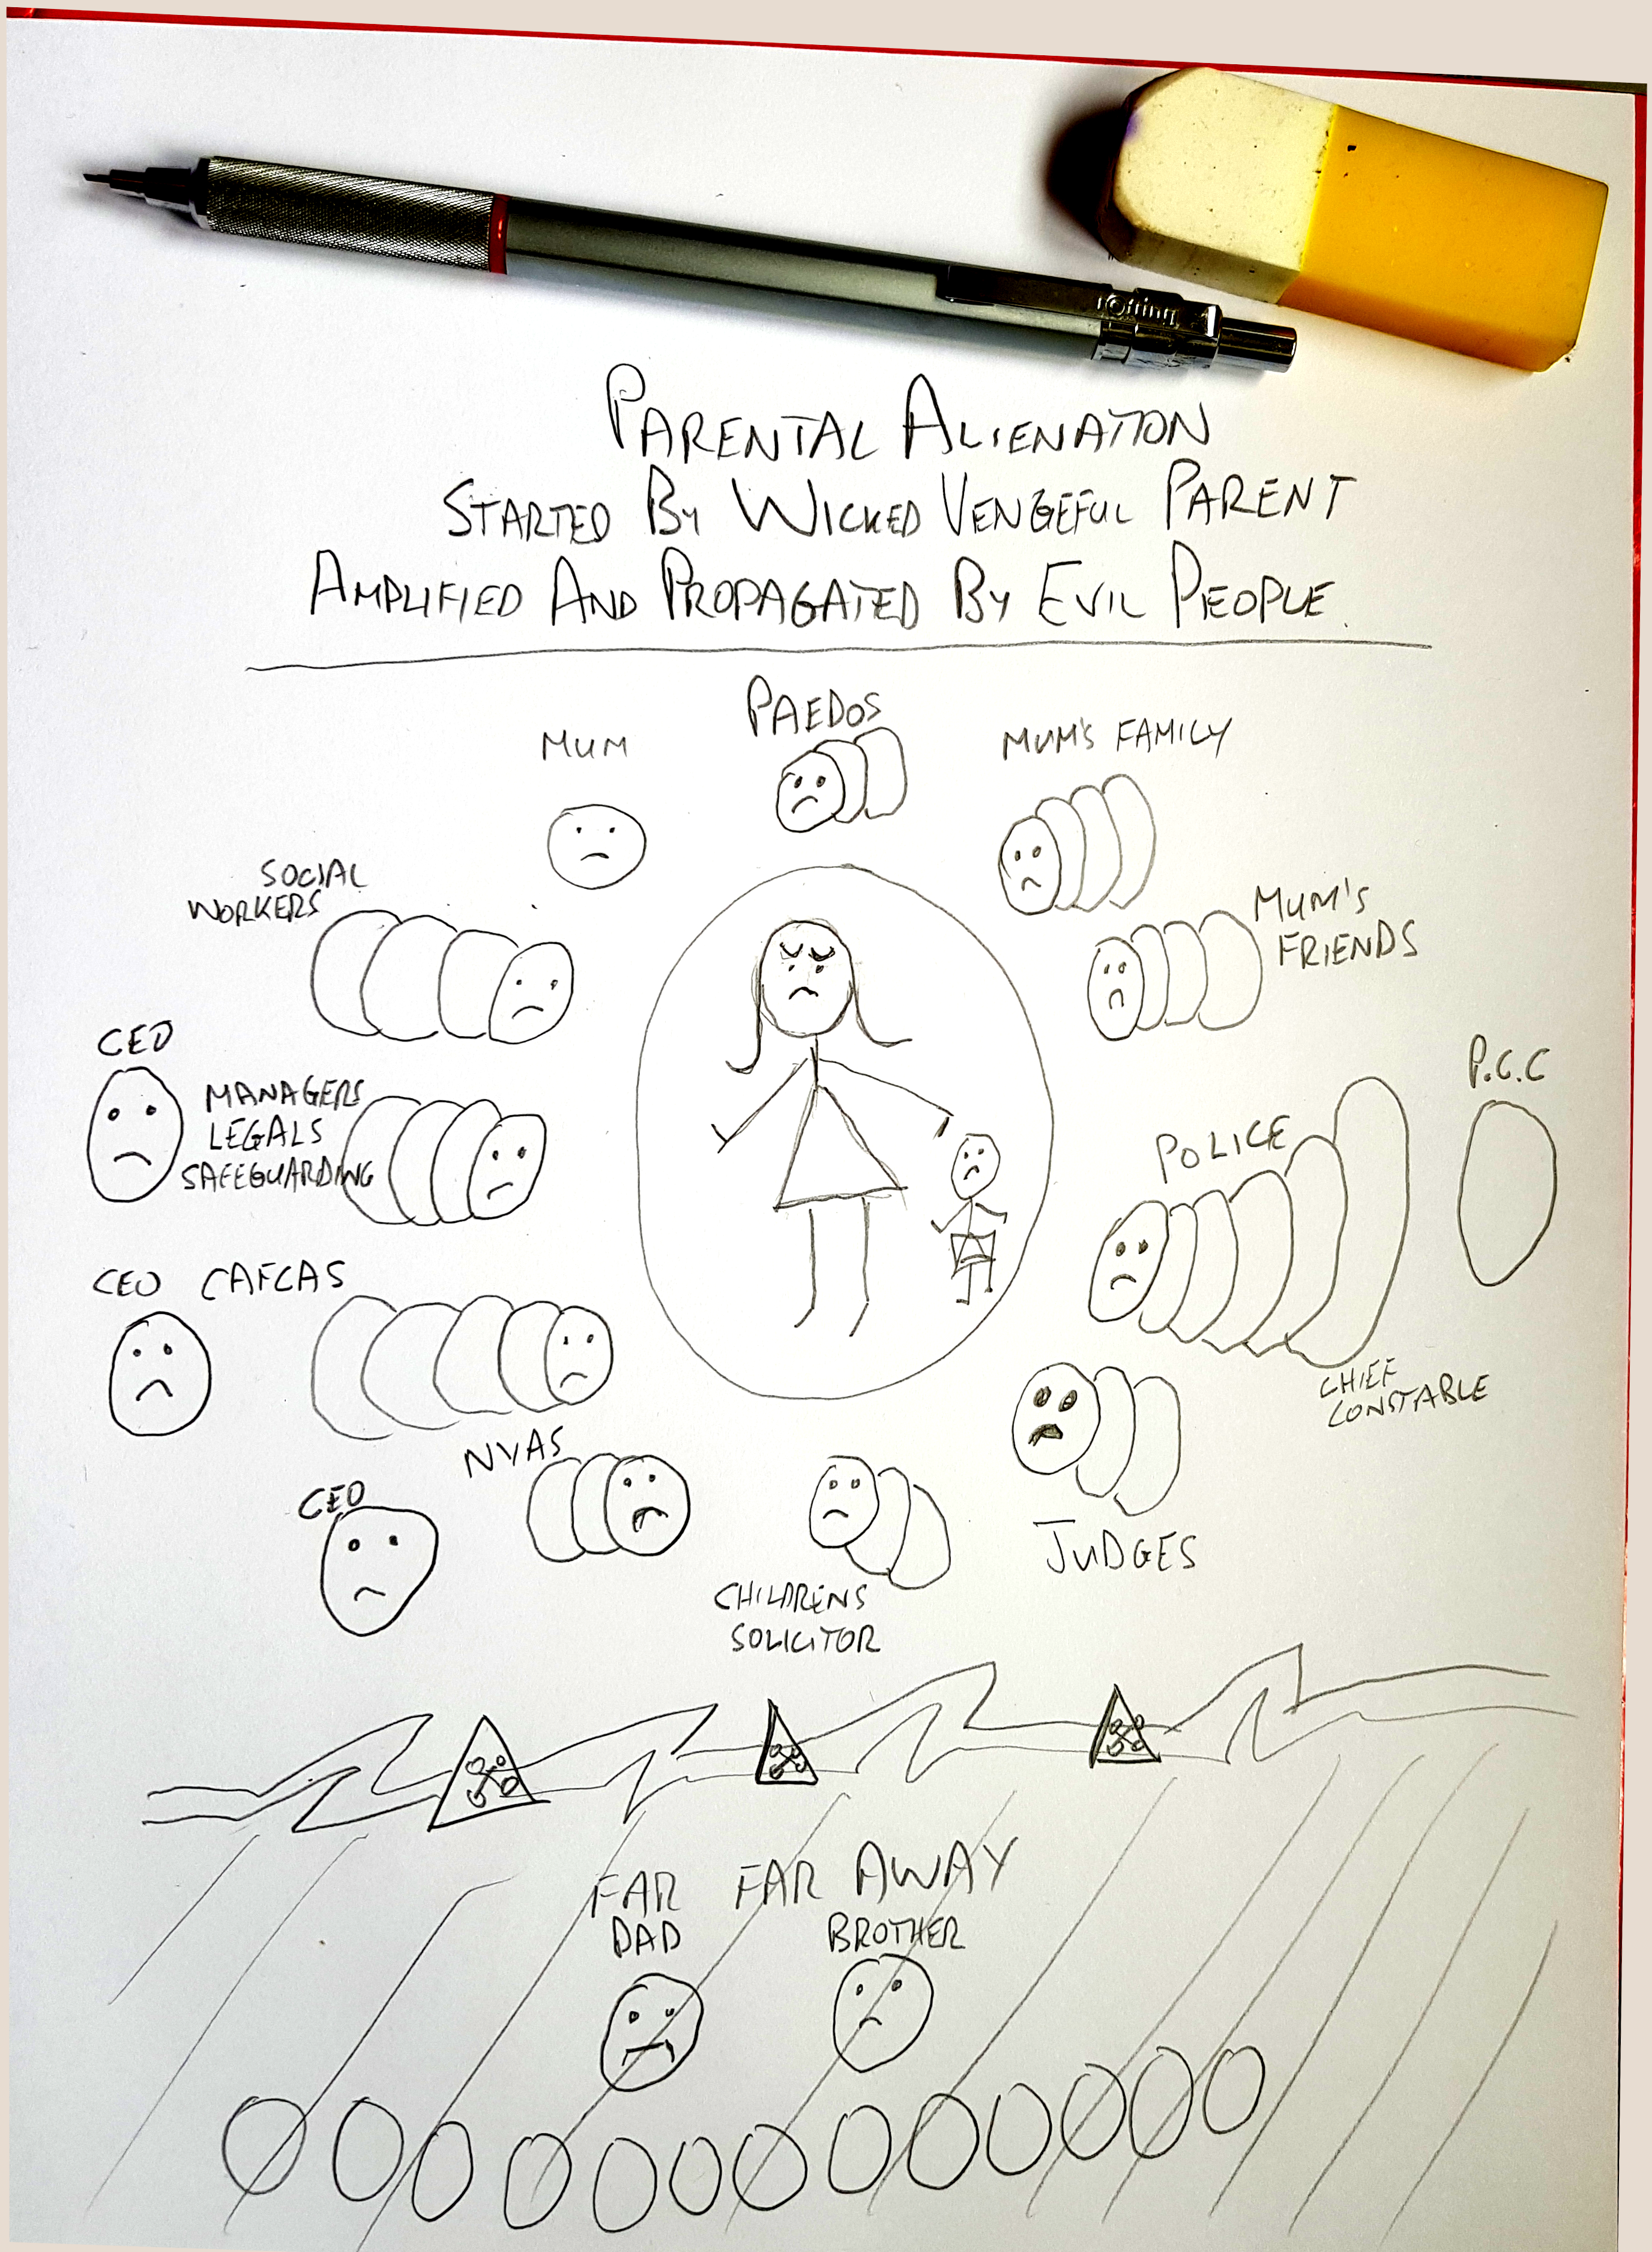 rotring
PARENTAL ALIENATION
STARTED BY WICKED VENGEFUL PARENT
AMPLIFIED AND PROPAGATED BY EVIL PEOPLE.
PAEDOS
MUM
MUM'S FAMILY
SOCIAL
WORKERS
MUM'S
FRIENDS
CEO
MANAGERS
LEGALS
SAFEGUARDING
P.C.C
POLICE
CHIEF
CONSTABLE
CEO CAFCAS
NYAS
CEO
JUDGES
CHILDRENS
SOLICITOR
FAR FAR AWAY
DAD BROTHER